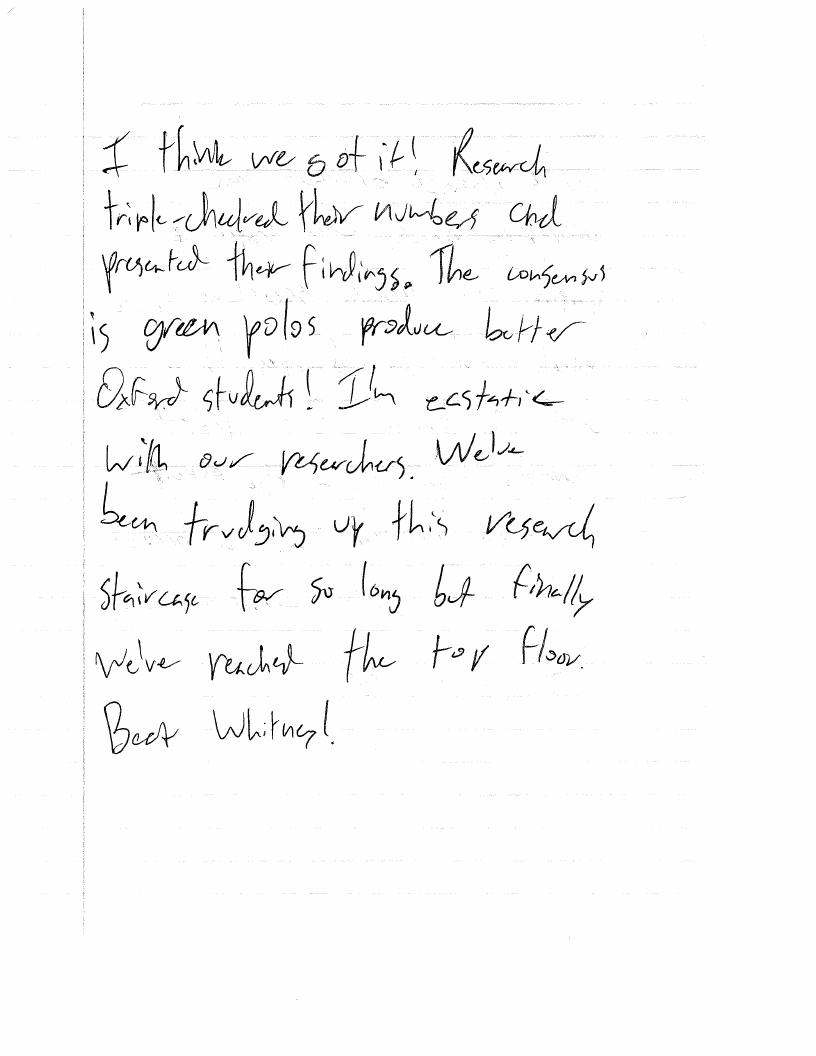 I think we got it! Research
triple-checked their numbers and
presented their findings. The consensus
is green polos produce better
Oxford students! I'm ecstatic
with our researchers. We've
been trudging up this research
staircase for so long but finally
we've reached the top floor.
Beat Whitney!